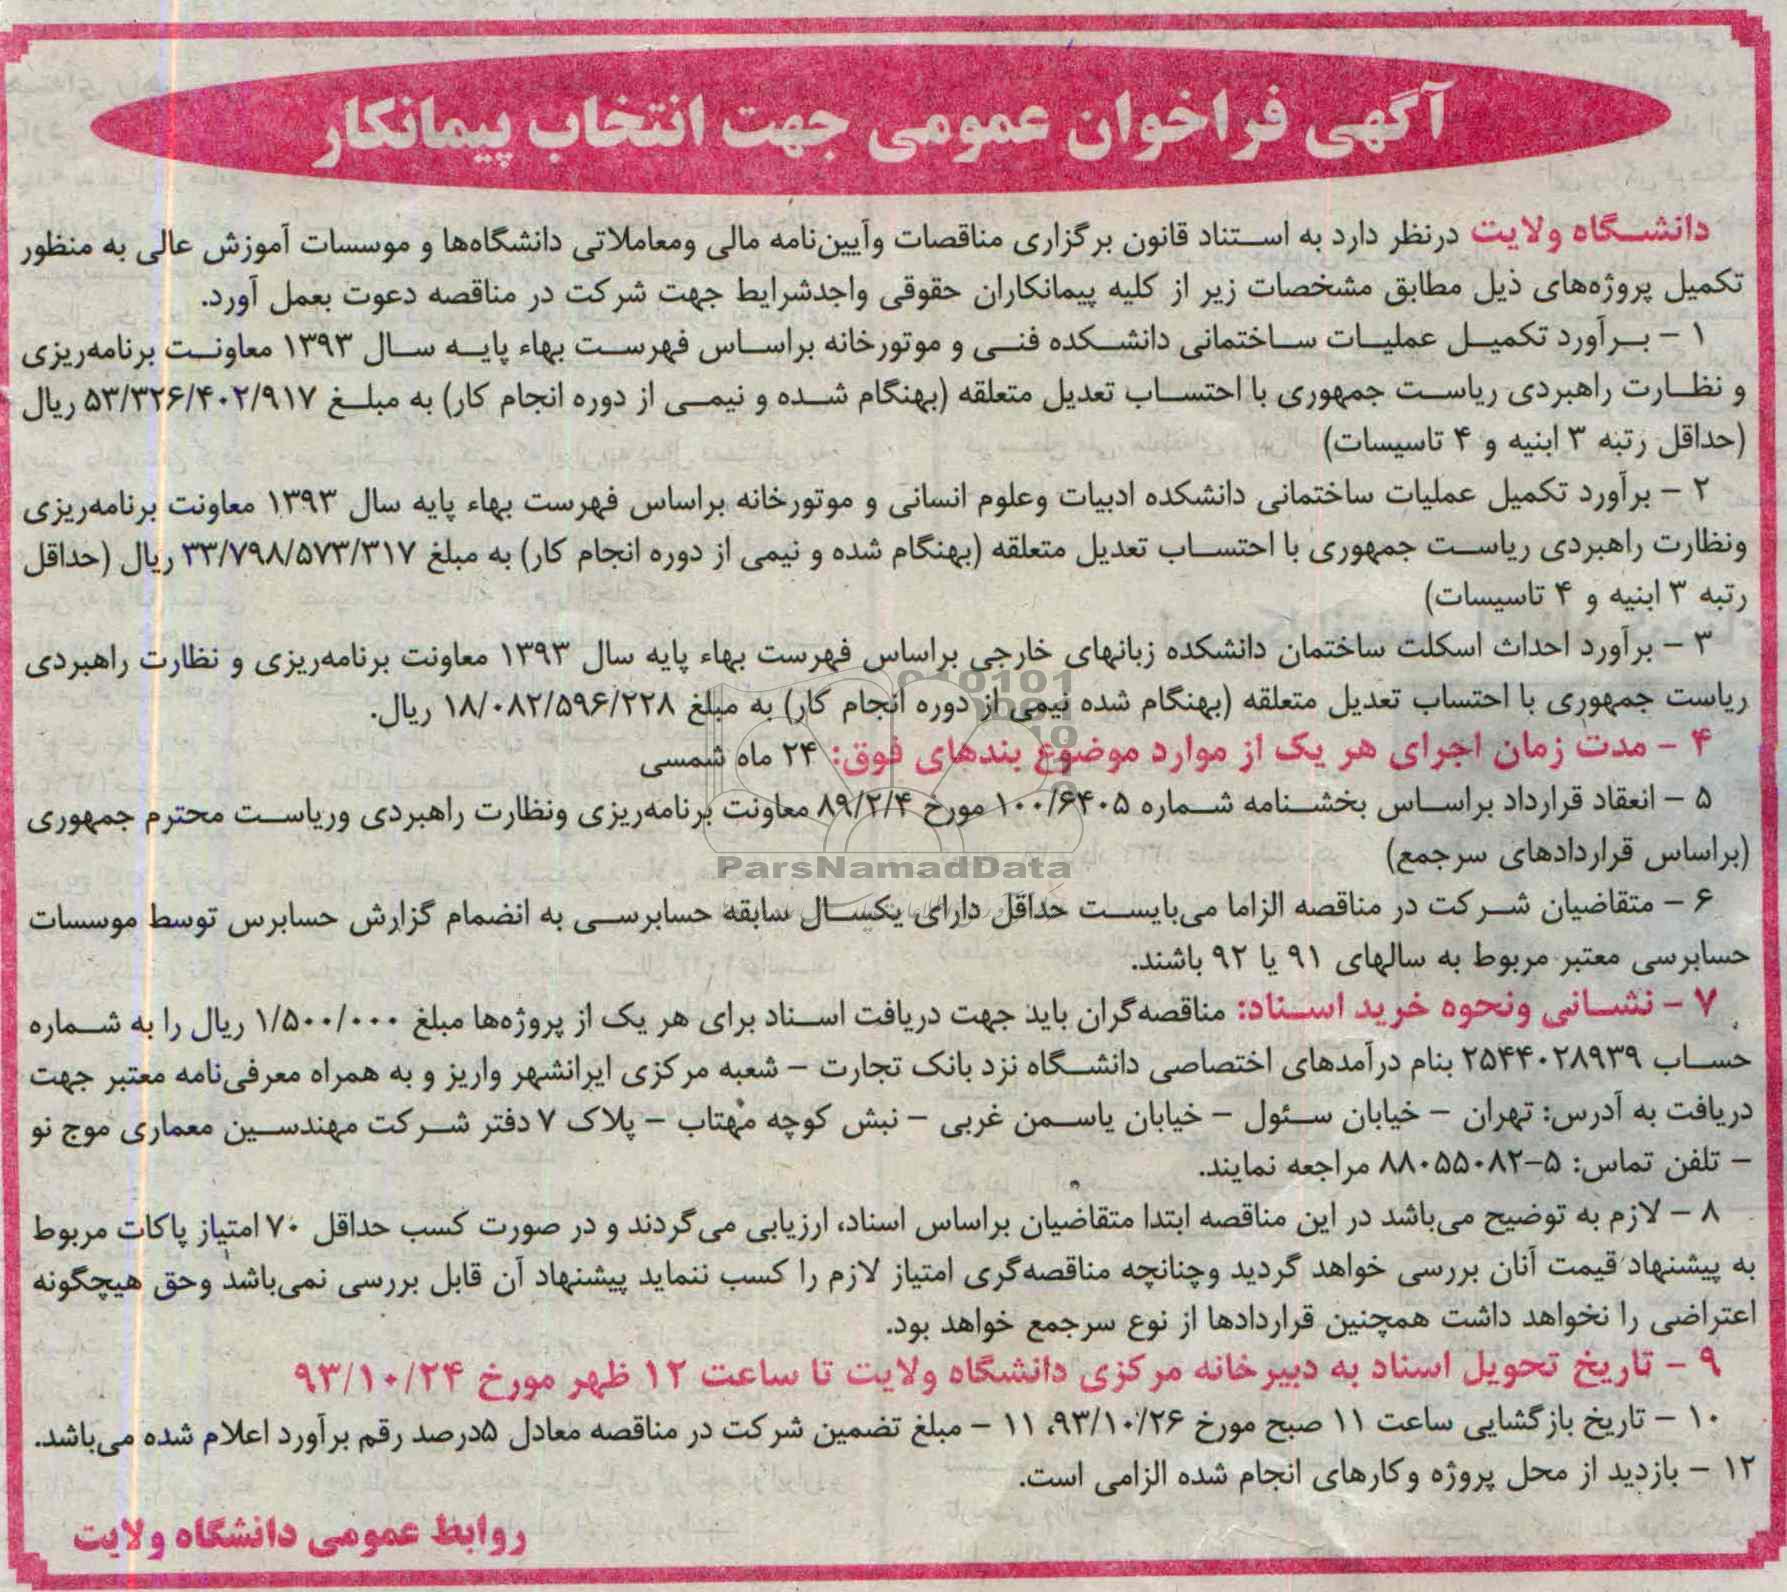 آگهی فراخوان عمومی جهت انتخاب پیمانکار
دانشگاه ولایت درنظر دارد به استناد قانون برگزاری مناقصات وآیین‌نامه مالی ومعاملاتی دانشگاه‌ها و موسسات آموزش عالی به منظور
تکمیل پروژه‌های ذیل مطابق مشخصات زیر از کلیه پیمانکاران حقوقی واجدشرایط جهت شرکت در مناقصه دعوت بعمل آورد.
۱ – برآورد تکمیل عملیات ساختمانی دانشکده فنی و موتورخانه براساس فهرست بهاء پایه سال ۱۳۹۳ معاونت برنامه‌ریزی
و نظارت راهبردی ریاست جمهوری با احتساب تعدیل متعلقه (بهنگام شده و نیمی از دوره انجام کار) به مبلغ ۵۳/۳۲۶/۴۰۲/۹۱۷ ریال
(حداقل رتبه ۳ ابنیه و ۴ تاسیسات)
۲ – برآورد تکمیل عملیات ساختمانی دانشکده ادبیات وعلوم انسانی و موتورخانه براساس فهرست بهاء پایه سال ۱۳۹۳ معاونت برنامه‌ریزی
ونظارت راهبردی ریاست جمهوری با احتساب تعدیل متعلقه (بهنگام شده و نیمی از دوره انجام کار) به مبلغ ۳۳/۷۹۸/۵۷۳/۳۱۷ ریال (حداقل
رتبه ۳ ابنیه و ۴ تاسیسات)
۳ – برآورد احداث اسکلت ساختمان دانشکده زبانهای خارجی براساس فهرست بهاء پایه سال ۱۳۹۳ معاونت برنامه‌ریزی و نظارت راهبردی
ریاست جمهوری با احتساب تعدیل متعلقه (بهنگام شده نیمی از دوره انجام کار) به مبلغ ۱۸/۰۸۲/۵۹۶/۲۲۸ ریال.
۴ – مدت زمان اجرای هر یک از موارد موضوع بندهای فوق: ۲۴ ماه شمسی
۵ – انعقاد قرارداد براساس بخشنامه شماره ۱۰۰/۶۴۰۵ مورخ ۸۹/۲/۴ معاونت برنامه‌ریزی ونظارت راهبردی وریاست محترم جمهوری
(براساس قراردادهای سرجمع)
ParsNamadData
۶ – متقاضیان شرکت در مناقصه الزاما می‌بایست حداقل دارای یکسال سابقه حسابرسی به انضمام گزارش حسابرس توسط موسسات
حسابرسی معتبر مربوط به سالهای ۹۱ یا ۹۲ باشند.
۷ – نشانی ونحوه خرید اسناد: مناقصه‌گران باید جهت دریافت اسناد برای هر یک از پروژه‌ها مبلغ ۱/۵۰۰/۰۰۰ ریال را به شماره
حساب ۲۵۴۴۰۲۸۹۳۹ بنام درآمدهای اختصاصی دانشگاه نزد بانک تجارت – شعبه مرکزی ایرانشهر واریز و به همراه معرفی‌نامه معتبر جهت
دریافت به آدرس: تهران – خیابان سئول – خیابان یاسمن غربی – نبش کوچه مهتاب – پلاک ۷ دفتر شرکت مهندسین معماری موج نو
– تلفن تماس: ۵-۸۸۰۵۵۰۸۲ مراجعه نمایند.
۸ – لازم به توضیح می‌باشد در این مناقصه ابتدا متقاضیان براساس اسناد، ارزیابی می‌گردند و در صورت کسب حداقل ۷۰ امتیاز پاکات مربوط
به پیشنهاد قیمت آنان بررسی خواهد گردید وچنانچه مناقصه‌گری امتیاز لازم را کسب ننماید پیشنهاد آن قابل بررسی نمی‌باشد وحق هیچگونه
اعتراضی را نخواهد داشت همچنین قراردادها از نوع سرجمع خواهد بود.
۹ – تاریخ تحویل اسناد به دبیرخانه مرکزی دانشگاه ولایت تا ساعت ۱۲ ظهر مورخ ۹۳/۱۰/۲۴
۱۰ – تاریخ بازگشایی ساعت ۱۱ صبح مورخ ۹۳/۱۰/۲۶، ۱۱ – مبلغ تضمین شرکت در مناقصه معادل ۵درصد رقم برآورد اعلام شده می‌باشد.
۱۲ – بازدید از محل پروژه وکارهای انجام شده الزامی است.
روابط عمومی دانشگاه ولایت